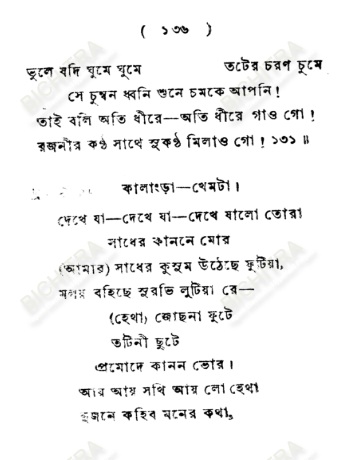 ( ১৩৬ )
ভুলে যদি ঘুমে ঘুমে তটের চরণ চুমে
সে চুম্বন ধ্বনি শুনে চমকে আপনি!
তাই বলি অতি ধীরে—অতি ধীরে গাও গো!
রজনীর কণ্ঠ সাথে সুকণ্ঠ মিলাও গো! ১৩১॥
কালাংড়া—খেমটা।
দেখে যা—দেখে যা—দেখে যালো তোরা
সাধের কাননে মোর
(আমার) সাধের কুসুম উঠেছে ফুটিয়া,
মলয় বহিছে সুরভি লুটিয়া রে—
(হেথা) জোছনা ফুটে
তটিনী ছুটে
প্রমোদে কানন ভোর।
আয় আয় সখি আয় লো হেথা
দুজনে কহিব মনের কথা,